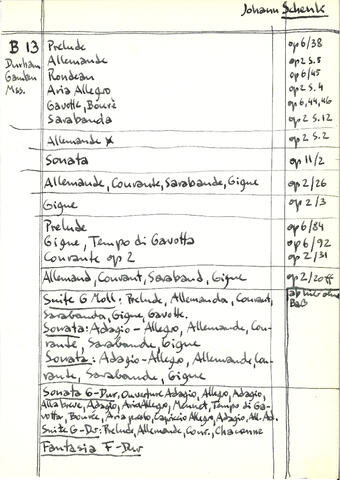 Johann Schenk
B 13 Prelude op 6/38
Durham Allemande op 2 S. 5
Gamben Rondeau op 6/45
Mss. Aria Allegro op 2 S. 4
Gavotte, Bourè op 6, 44, 46
Sarabanda op 2 S. 12
Allemande x op 2 S. 2
Sonata op 11/2
Allemande, Courante, Sarabande, Gigue op 2/26
Gigue op 2/3
Prelude op 6/84
Gigue, Tempo di Gavotta op 6/92
Courante op 2 op 2/31
Allemand, Courant, Saraband, Gigue op 2/20ff
Suite G Moll: Prelude, Allemanda, Courant, ab hier ohne
Sarabanda, Gigue, Gavotte. Baß
Sonata: Adagio - Allegro, Allemande, Cou-
rante, Sarabande, Gigue
Sonata: Adagio - Allegro, Allemande, Cou-
rante, Sarabande, Gigue
Sonata G-Dur, Ouverture Adagio, Allegro, Adagio,
Alla breve, Adagio, Aria Allegro, Menuet, Tempo di Ga-
votta, Bourèe, Capriccio Allegro, Adagio, All. Ad.
Suite G-Dur: Prelude, Allemande, Cour., Chaconne
Fantasia F-Dur